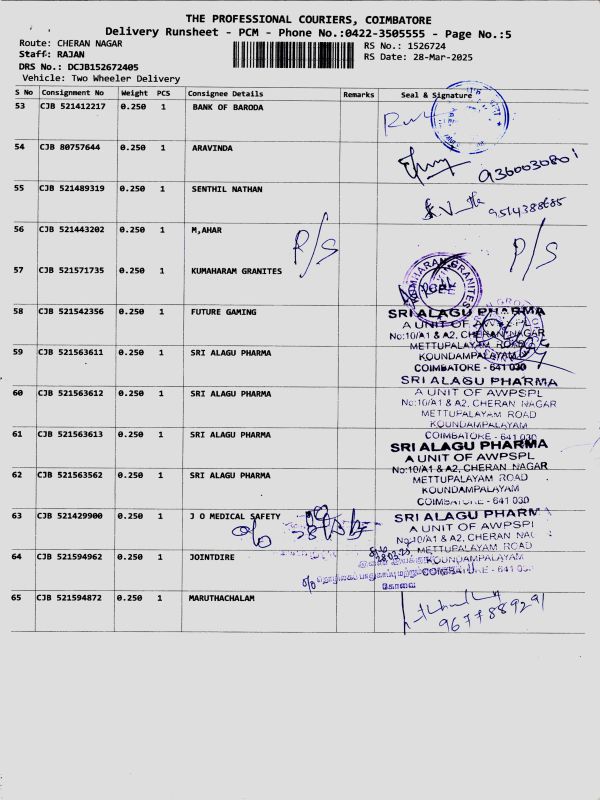 THE PROFESSIONAL COURIERS, COIMBATORE
Delivery Runsheet - PCM - Phone No.:0422-3505555 - Page No.:5
Route: CHERAN NAGAR
RS No.: 1526724
Staff: RAJAN
RS Date: 28-Mar-2025
DRS No.: DCJB152672405
Vehicle: Two Wheeler Delivery
S No Consignment No Weight PCS Consignee Details Remarks Seal & Signature
53 CJB 521412217 0.250 1 BANK OF BARODA
54 CJB 80757644 0.250 1 ARAVINDA
9360030801
55 CJB 521489319 0.250 1 SENTHIL NATHAN
9514388685
56 CJB 521443202 0.250 1 M,AHAR
P/S P/S
57 CJB 521571735 0.250 1 KUMAHARAM GRANITES
58 CJB 521542356 0.250 1 FUTURE GAMING
SRI ALAGU PHARMA
A UNIT OF AWPSPL
No:10/A1 & A2, CHERAN NAGAR
METTUPALAYAM ROAD
KOUNDAMPALAYAM
COIMBATORE - 641 030
59 CJB 521563611 0.250 1 SRI ALAGU PHARMA
SRI ALAGU PHARMA
A UNIT OF AWPSPL
No:10/A1 & A2, CHERAN NAGAR
METTUPALAYAM ROAD
KOUNDAMPALAYAM
COIMBATORE - 641 030
60 CJB 521563612 0.250 1 SRI ALAGU PHARMA
61 CJB 521563613 0.250 1 SRI ALAGU PHARMA
SRI ALAGU PHARMA
A UNIT OF AWPSPL
No:10/A1 & A2, CHERAN NAGAR
METTUPALAYAM ROAD
KOUNDAMPALAYAM
COIMBATORE - 641 030
62 CJB 521563562 0.250 1 SRI ALAGU PHARMA
63 CJB 521429900 0.250 1 J O MEDICAL SAFETY
SRI ALAGU PHARMA
A UNIT OF AWPSPL
No:10/A1 & A2, CHERAN NAGAR
METTUPALAYAM ROAD
KOUNDAMPALAYAM
COIMBATORE - 641 030
64 CJB 521594962 0.250 1 JOINTDIRE
கோவை
65 CJB 521594872 0.250 1 MARUTHACHALAM
9677889291